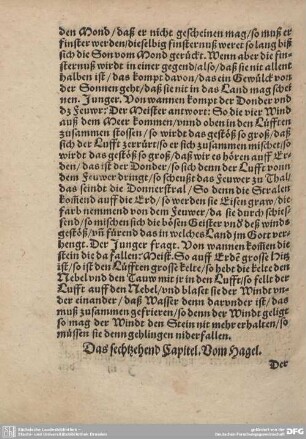 den Mond/daß er nicht gescheinen mag/so muß er
finster werden/dieselbig finsternuß weret so lang biß
sich die Son vom Mond gerückt. Wenn aber die fin-
sternuß wirdt in einer gegend/also/daß sie nit allent
halben ist/das kompt davon/das ein Gewülck von
der Sonnen geht/daß sie nit in das Land mag schei
nen. Junger. Von wannen kompt der Donder vnd
dz Feuwr: Der Meister antwort: So die vier Wind
auß dem Meer kommen/vnnd oben in den Lufften
zusammen stossen/so wirdt das gestöß so groß/daß
sich der Lufft zerrürt/so er sich zusammen mischet/so
wirdt das gestöß so groß/daß wir es hören auff Er-
den/das ist der Donder/so sich denn der Lufft von
dem Feuwer dringt/so scheußt das Feuwer zu Thal/
das seindt die Donnerstral/So denn die Stralen
kom̃end auff die Erd/so werden sie Eisen graw/die
farb nemmend von dem Feuwer/da sie durch schies-
send/so mischen sich die bösen Geister vnd deß winds
gestöß/vñ fürend das in welches Land jm Gott ver-
henge. Der Junger fragt. Von wannen kom̃en die
stein die da fallen: Meist. So auff Erdẽ grosse Hitz
ist/so ist den Lüfften grosse kelte/so hebt die kelte den
Nebel vnd den Tauw mit jr in den Lufft/so fellt der
Lufft auff den Nebel/vnd blaset sie der Wind vn-
der einander/daß Wasser denn darvnder ist/das
muß zusammen gefrieren/so denn der Wind geligt
so mag der Windt den Stein nit mehr erhalten/so
müssen sie denn gehlingen niderfallen.
Das sechtzehend Capitel. Vom Hagel.
Der